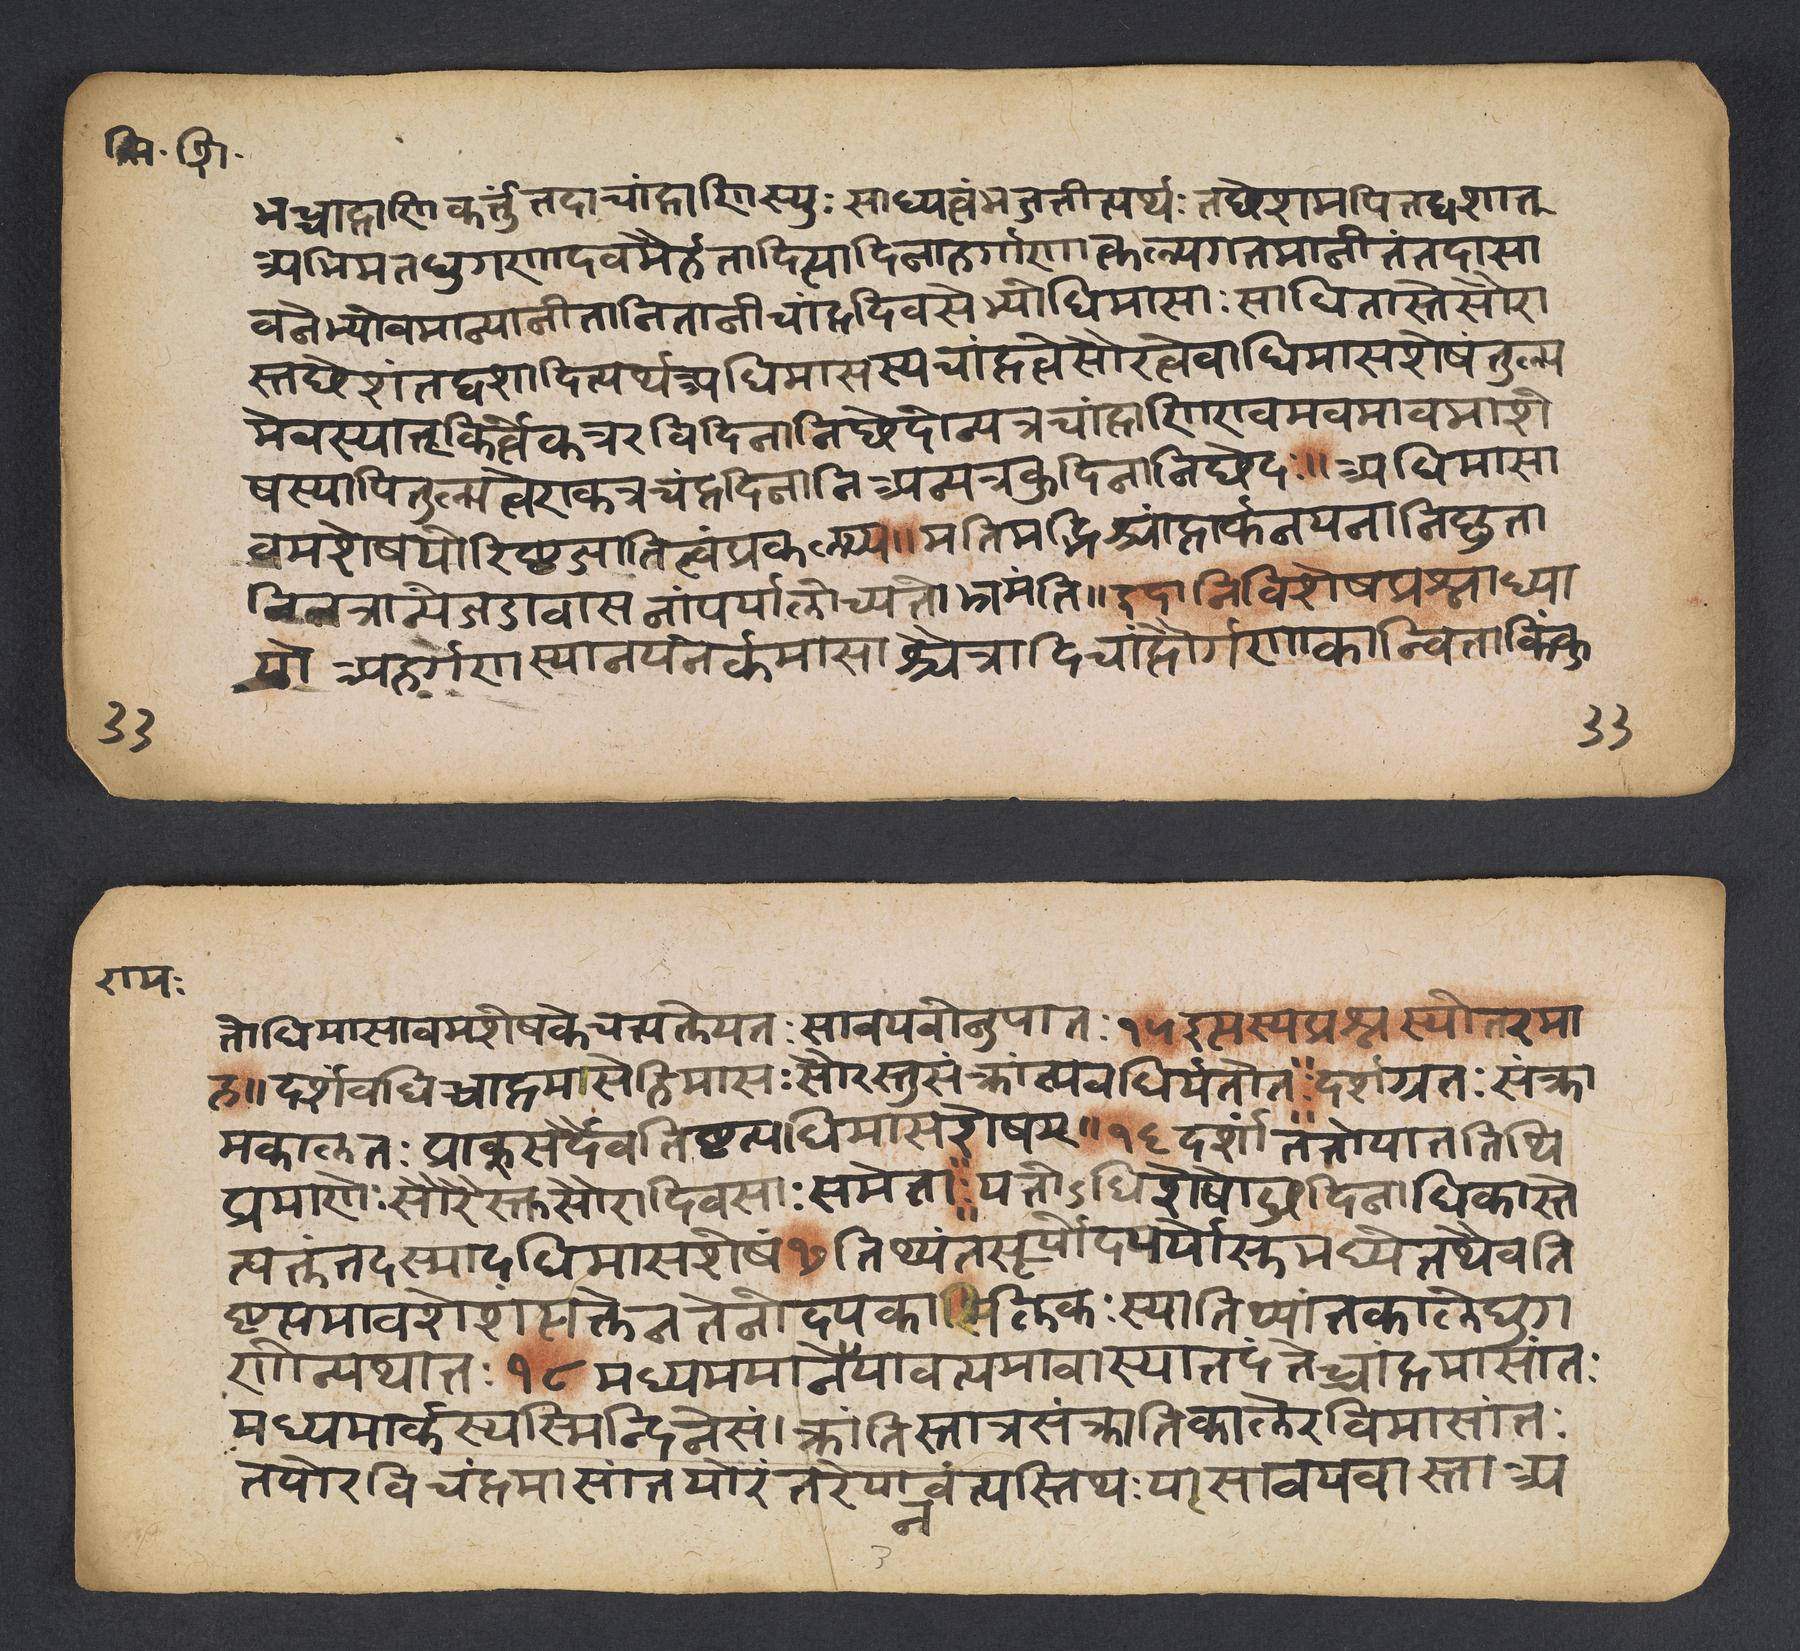 सि. शि.
मच्चाद्राणि कर्त्तुं तदा चांद्राणि स्युः साध्यत्वं भजतीत्यर्थः तच्छेशमपि तद्वशात्
अभिमतद्युगणादवमैर्हतादित्यादिनाहर्गणात्कल्पगतमानीतं तदा सा
वनेभ्योवमान्यानीतानि तानी चांद्रदिवसेभ्योधिमासाः साधितास्ते सौरा
स्तच्छेशं तद्वशादित्यर्थ अधिमासस्य चांद्रत्वे सौरत्वे वाधिमासशेषं तुल्य
मेवस्यात् किंत्वेकत्र रविदिनानिछेदोन्यत्र चांद्राणि एवमवमावमाशे
षस्यापि तुल्यत्व एकत्र चंद्रदिनानि अन्यत्र कुदिनानि छेदः ॥ अधिमासा
वमशेषयोरिष्टजातित्वं प्रकल्प्य ॥ मतिमद्भिश्चांद्रार्कनयनानि घुता
नि तत्रान्येजडावासनां पर्यालोच्यतो भ्रमंति ॥ इदानि विशेषप्रश्नाध्या
यो अहर्गणस्यानयनेर्कमासाश्चैत्रादिचांद्रैर्गणकान्विता किंकु
33 33
रामः
तोधिमासावमशेषके च त्यक्तेयतः सावयवोनुपातः १५ इत्यस्य प्रश्नस्योतरमा
ह ॥ दर्शवधिश्चाद्रमासेहिमासः सौरस्तु संक्रांत्यवधिर्यतोतः दर्शग्रतः संक्रा
मकालतः प्राक् सदैव तिष्टत्यधिमासशेषम् ॥ १६ दर्शांततोयाततिथि
प्रमाणैः सौरैस्तु सौरादिवसाः समेताः यतोऽधिशेषोत्थदिनाधिकास्ते
त्यक्तं तदस्मादधिमासशेषं १७ तिथ्यंतसूर्योदययोस्तु मध्ये तथैवति
ष्टत्यमावशेशं त्यक्तेन तेनोदयकालिकः स्यातिथ्यांतकाले द्युग
णोन्यथातः १८ मध्यममानेयावत्यमावास्यातदंतेश्चांद्रमासांतः
मध्यमार्कस्यस्मिन्दिने सं। क्रांतिस्तात्र संक्रातिकाले रविमासांतः
तयोरविचंद्रमासांतयोरंतरे यावंत्यस्तिथः यः सावयवास्ता अ
न
3